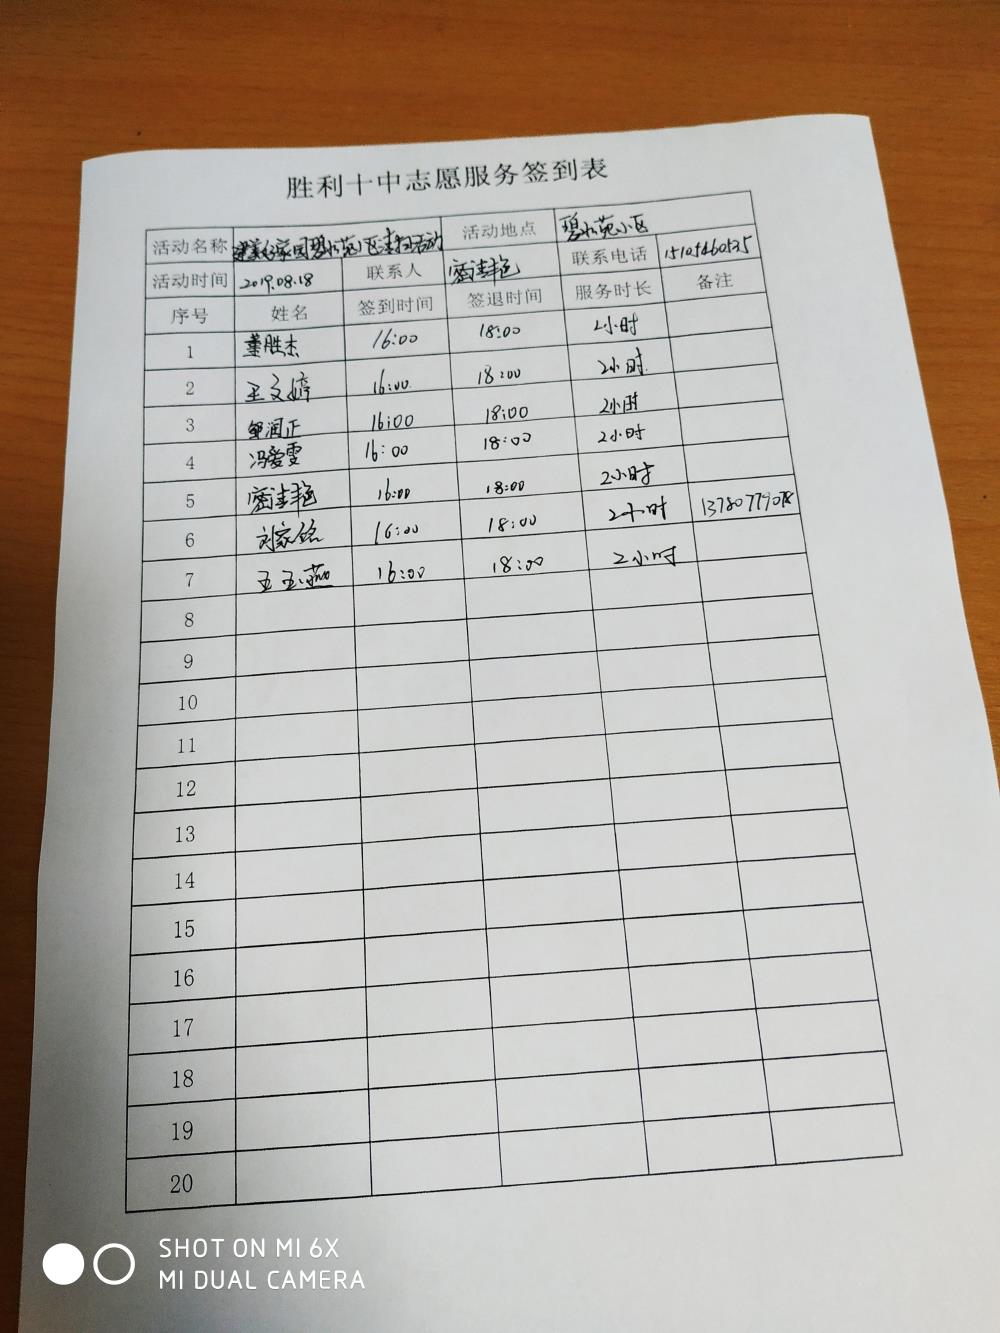 胜利十中志愿服务签到表
活动名称 建美好家园碧水苑小区清扫活动 活动地点 碧水苑小区
活动时间 2019.08.18 联系人 联系电话 15105460535
序号 姓名 签到时间 签退时间 服务时长 备注
1 董胜杰 16:00 18:00 2小时
2 王文婷 16:00 18:00 2小时
3 邹润正 16:00 18:00 2小时
4 冯爱雯 16:00 18:00 2小时
5 16:00 18:00 2小时
6 刘家铭 16:00 18:00 2小时
7 王玉燕 16:00 18:00 2小时
8
9
10
11
12
13
14
15
16
17
18
19
20
SHOT ON MI 6X
MI DUAL CAMERA